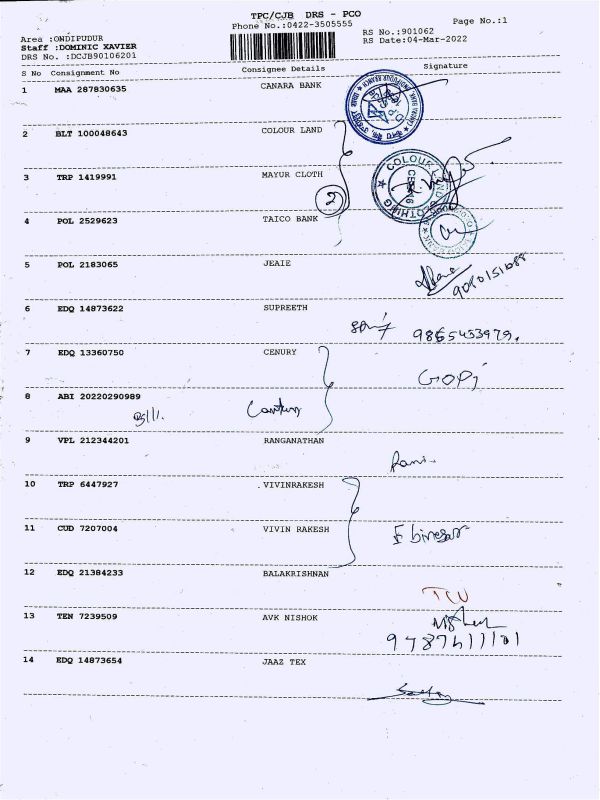 TPC/CJB DRS - PCO
Phone No.:0422-3505555
Page No.:1
Area :ONDIPUDUR
Staff :DOMINIC XAVIER
DRS No. :DCJB90106201
RS No.:901062
RS Date:04-Mar-2022
S No Consignment No Consignee Details Signature
1 MAA 287830635 CANARA BANK
2 BLT 100048643 COLOUR LAND
3 TRP 1419991 MAYUR CLOTH
COLOUR LAND CLOTHING
2
4 POL 2529623 TAICO BANK
5 POL 2183065 JEAIE
6 EDQ 14873622 SUPREETH
9865433979.
7 EDQ 13360750 CENURY
GOPi
8 ABI 20220290989
9 VPL 212344201 RANGANATHAN
Rani.
10 TRP 6447927 .VIVINRAKESH
11 CUD 7207004 VIVIN RAKESH
12 EDQ 21384233 BALAKRISHNAN
13 TEN 7239509 AVK NISHOK
14 EDQ 14873654 JAAZ TEX